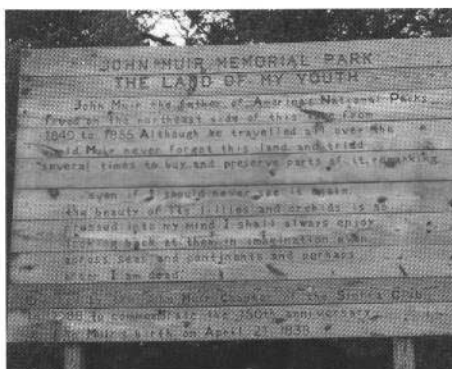 JOHN MUIR MEMORIAL PARK
THE LAND OF MY YOUTH
John Muir the father of America's National Parks
lived on the northeast side of this from
1849 to 1855 Although he travelled all over the
world Muir never forgot this land and tried
several times to buy and preserve parts of it, remarking
even if I should never see it again
the beauty of its lillies and orchids is so
pressed into my mind I shall always enjoy
looking back at them in imagination even
across seas and continents and perhaps
after I am dead
by the John Muir Chapter of the Sierra Club
to commemorate the 150th anniversary
Muir's birth on April 21, 1838